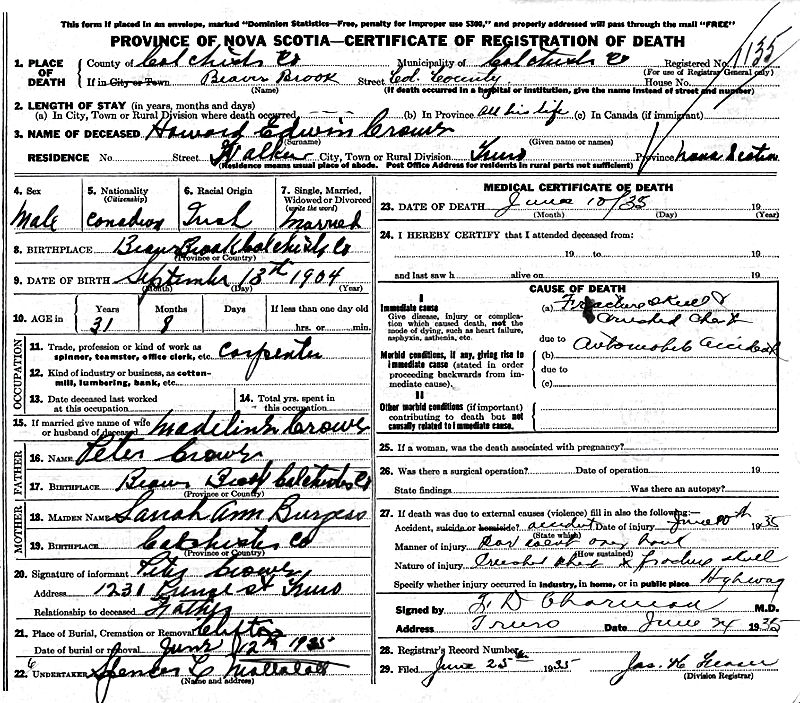 This form if placed in an envelope, marked "Dominion Statistics—Free, penalty for improper use $300," and properly addressed will pass through the mail "FREE"
PROVINCE OF NOVA SCOTIA—CERTIFICATE OF REGISTRATION OF DEATH
1. PLACE OF DEATH County of Colchester Co Municipality of Colchester Co Registered No. 1135
(For use of Registrar General only)
If in City or Town Beaver Brook Street Col. County House No.
(Name) (If death occurred in a hospital or institution, give the name instead of street and number)
2. LENGTH OF STAY (in years, months and days)
(a) In City, Town or Rural Division where death occurred (b) In Province all his life (c) In Canada (if immigrant)
3. NAME OF DECEASED Howard Edwin Crowe
(Surname) (Given name or names)
RESIDENCE No. Street Walker City, Town or Rural Division Truro Province Nova Scotia
(Residence means usual place of abode. Post Office Address for residents in rural parts not sufficient)
4. Sex 5. Nationality (Citizenship) 6. Racial Origin 7. Single, Married, Widowed or Divorced (write the word)
Male Canadian Irish Married
8. BIRTHPLACE Beaver Brook Colchester Co
(Province or Country)
9. DATE OF BIRTH September 13th 1904
(Month) (Day) (Year)
10. AGE in Years Months Days If less than one day old
31 8 hrs. or min.
OCCUPATION
11. Trade, profession or kind of work as spinner, teamster, office clerk, etc. Carpenter
12. Kind of industry or business, as cotton-mill, lumbering, bank, etc.
13. Date deceased last worked at this occupation 14. Total yrs. spent in this occupation
15. If married give name of wife or husband of deceased Madeline Crowe
FATHER
16. NAME Peter Crowe
17. BIRTHPLACE Beaver Brook Colchester Co
(Province or Country)
MOTHER
18. MAIDEN NAME Sarah Ann Burgess
19. BIRTHPLACE Colchester Co
(Province or Country)
20. Signature of informant Peter Crowe
Address 1231 St Truro
Relationship to deceased Father
21. Place of Burial, Cremation or Removal Clifton
Date of burial or removal June 12th 1935
22. UNDERTAKER Spencer C
(Name and address)
MEDICAL CERTIFICATE OF DEATH
23. DATE OF DEATH June 10/35 19
(Month) (Day) (Year)
24. I HEREBY CERTIFY that I attended deceased from:
19 to 19
and last saw h alive on 19
CAUSE OF DEATH
I
Immediate cause
Give disease, injury or complication which caused death, not the mode of dying, such as heart failure, asphyxia, asthenia, etc.
(a) Fracture Skull &
crushed chest
due to Automobile accident
Morbid conditions, if any, giving rise to immediate cause (stated in order proceeding backwards from immediate cause).
(b)
due to
(c)
II
Other morbid conditions (if important) contributing to death but not causally related to immediate cause.
25. If a woman, was the death associated with pregnancy?
26. Was there a surgical operation? Date of operation 19
State findings Was there an autopsy?
27. If death was due to external causes (violence) fill in also the following:—
Accident, suicide or homicide? accident Date of injury June 10th 1935
(State which)
Manner of injury Car went over
(How sustained)
Nature of injury Crushed chest & fracture skull
Specify whether injury occurred in industry, in home, or in public place Highway
Signed by M.D.
Address Truro Date June 24 1935
28. Registrar's Record Number
29. Filed June 25th 1935
(Division Registrar)